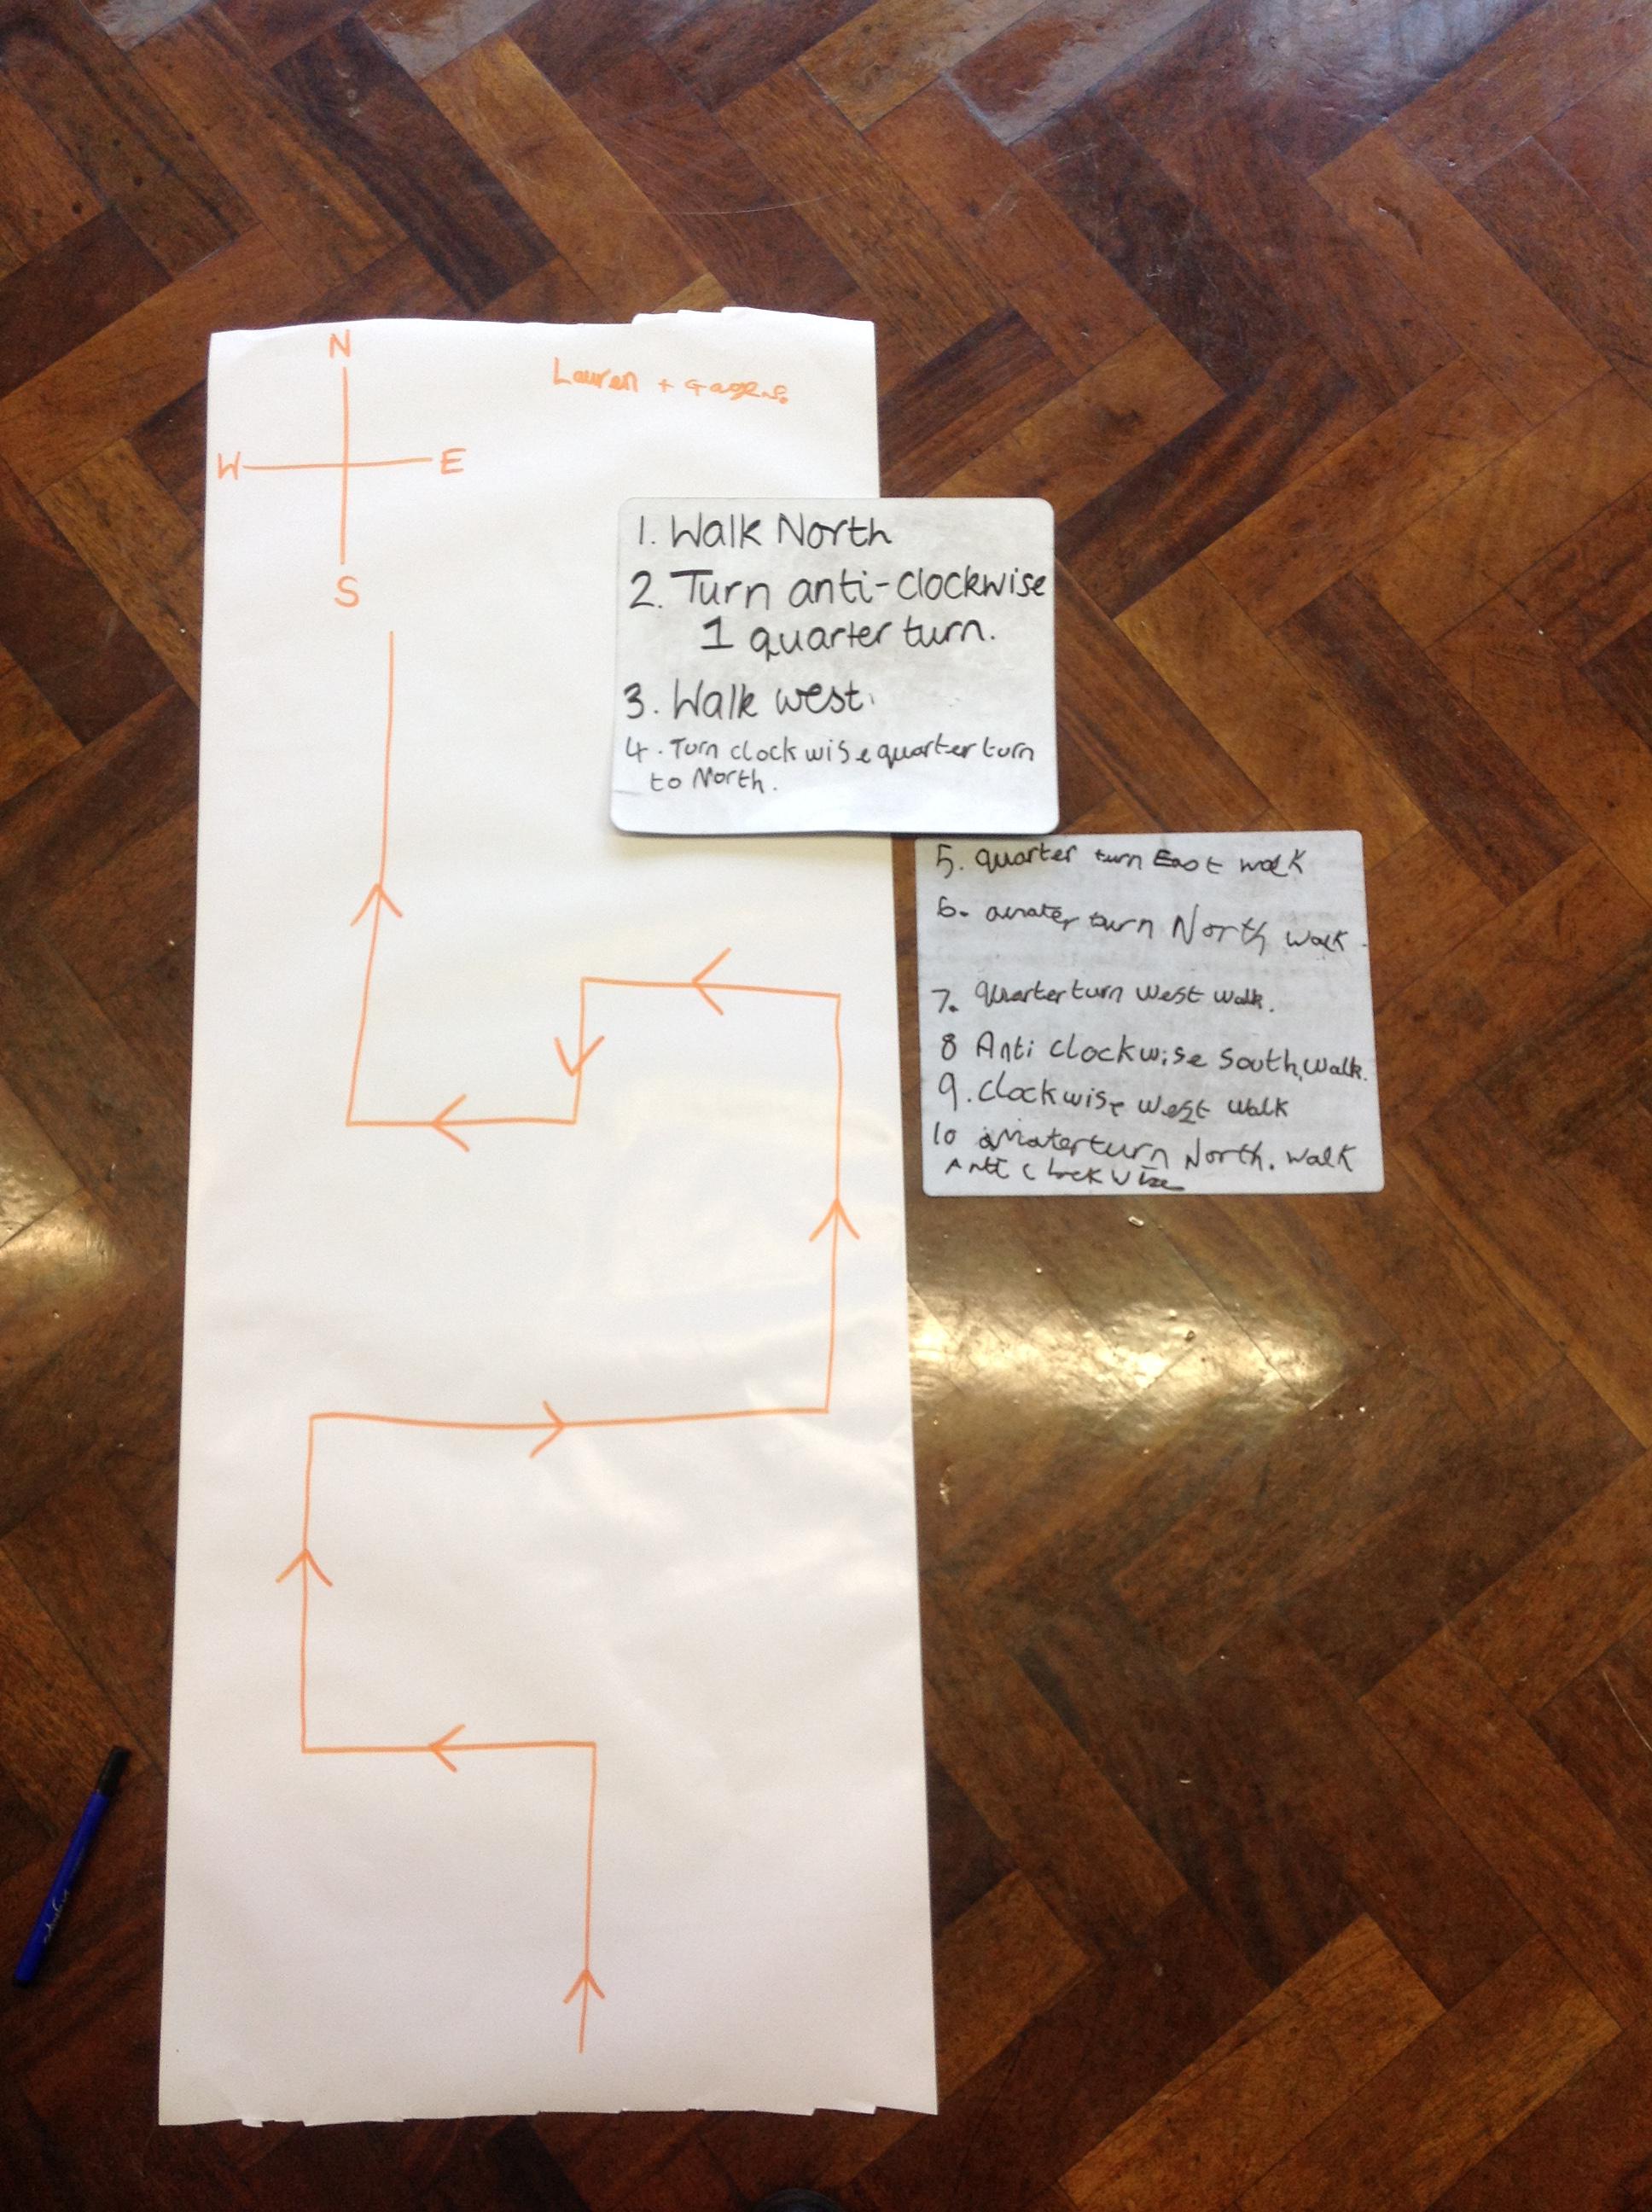 N
W E
S
Lauren +
1. Walk North
2. Turn anti-clockwise
1 quarter turn.
3. Walk west.
4. Turn clockwise quarter turn
to North.
5. quarter turn East walk
6. turn North walk.
7. Quarter turn west walk.
8 Anti clockwise south walk.
9. clockwise west walk
10 turn North. walk
Anti clockwise